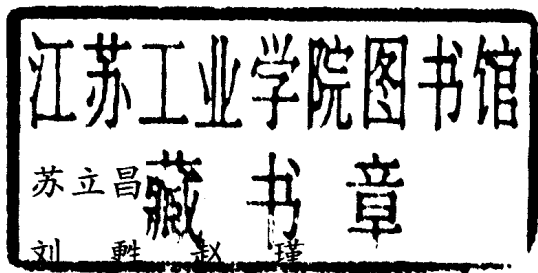 江苏工业学院图书馆
苏立昌
藏书章
刘 甦 赵 瑾